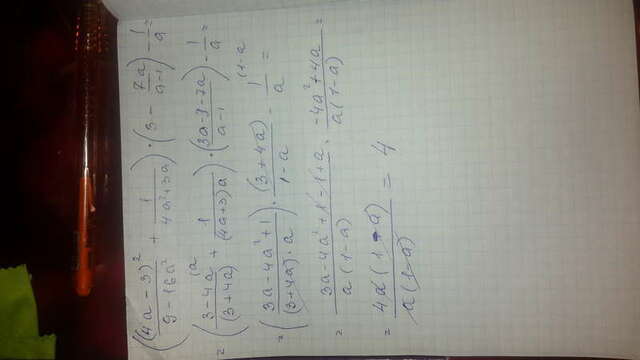 ((4a-3)²/(9-16a²) + 1/(4a²+3a)) · (3 - 7a/(a-1)) - 1/a =
= ((3-4a)/(3+4a) + 1/((4a+3)a)) · (3a-3-7a)/(a-1) - 1/a =
= ((3a-4a²+1)/((3+4a)·a)) · (3+4a)/(1-a) - 1/a =
= (3a-4a²+1-1+a)/(a(1-a)) = (-4a²+4a)/(a(1-a)) =
= 4a(1-a)/(a(1-a)) = 4